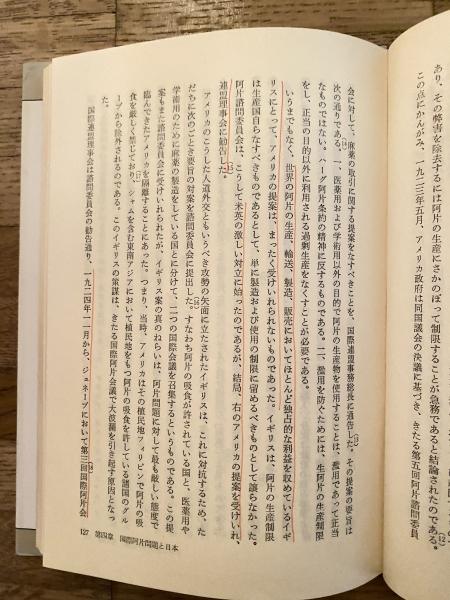 あり、その弊害を除去するには阿片の生産にさかのぼって制限することが急務であると結論されたのである。(12)
この点にかんがみ、一九二三年五月、アメリカ政府は同国議会の決議に基づき、きたる第五回阿片諮問委員
会に対して、麻薬の取引に関する提案をなすべきことを、国際連盟事務総長に通告した。その提案の要旨は
次の通りである。一、医薬用および学術用以外の目的で阿片の生産物を使用することは、濫用であって正当
なものではない。ハーグ阿片条約の精神に反するものである。二、濫用を防ぐためには、生阿片の生産制限
をし、正当の目的以外に利用される過剰生産をなくすことが必要である。
いうまでもなく、世界の阿片の生産、輸送、製造、販売においてほとんど独占的な利益を収めているイギ
リスにとって、アメリカの提案は、まったく受けいれられないものであった。イギリスは、阿片の生産制限
は生産国自らなすべきものであるとして、単に製造および使用の制限に留めるべきものとして譲らなかった。
阿片諮問委員会は、こうして米英の激しい対立に始ったのであるが、結局、右のアメリカの提案を受けいれ、
連盟理事会に勧告した。
アメリカのこうした人道外交ともいうべき攻勢の矢面に立たされたイギリスは、これに対抗するため、た
だちに次のごとき要旨の対案を諮問委員会に提出した。すなわち阿片の吸食が許されている国と、医薬用や
学術用のために麻薬の製造をしている国とに分けて、二つの国際会議を召集するというものである。この提
案もまた諮問委員会に受けいれられたが、イギリス案の真のねらいは、阿片問題に対して最も厳しい態度で
臨んできたアメリカを隔離することにあった。つまり、当時、アメリカはその植民地フィリピンで阿片の吸
食を厳しく禁じており、シャムを含む東南アジアにおいて植民地をもつ阿片の吸食を許している諸国のグル
ープから除外されるのである。このイギリスの策謀は、きたる国際阿片会議で大波瀾を引き起す原因となっ
た。
国際連盟理事会は諮問委員会の勧告通り、一九二四年一一月から、ジュネーブにおいて第三回国際阿片会
127 第四章 国際阿片問題と日本